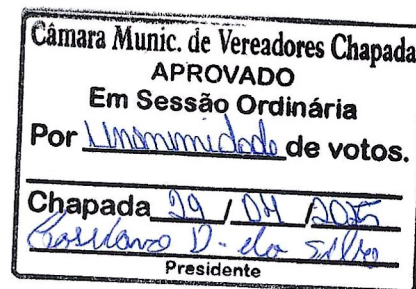 Câmara Munic. de Vereadores Chapada
APROVADO
Em Sessão Ordinária
Por Unanimidade de votos.
Chapada 29 / 04 / 2025
D. da Silva
Presidente